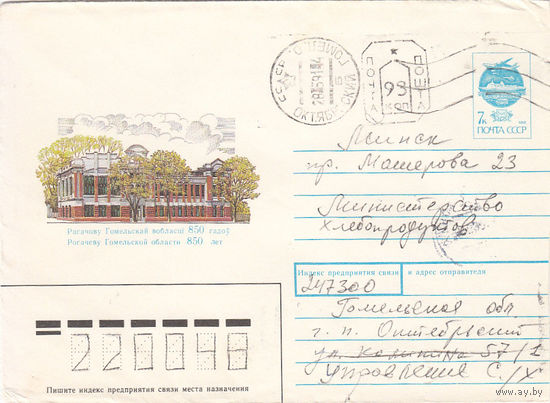 ПОШТА
ПОЧТА
93
КОП
7к
ПОЧТА СССР
Минск
пр. Машерова 23
Министерство
хлебопродуктов
Рагачову Гомельскай вобласці 850 гадоў
Рогачеву Гомельской области 850 лет
Индекс предприятия связи и адрес отправителя
247300
Гомельская обл.
г. п. Октябрьский
ул. Калинина 57/1
управление с/х
220048
Пишите индекс предприятия связи места назначения
www.ay.by